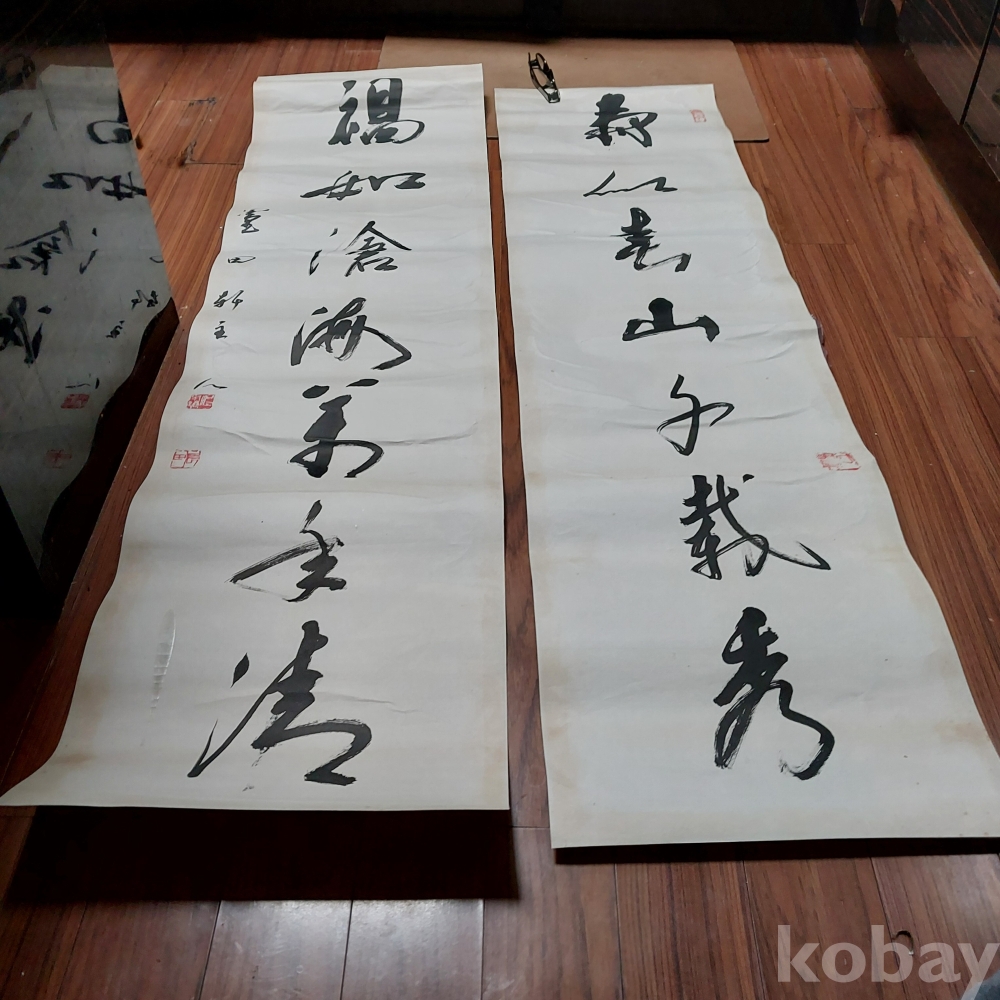 壽似春山千載秀
福如滄海萬年清
田
主人
kobay